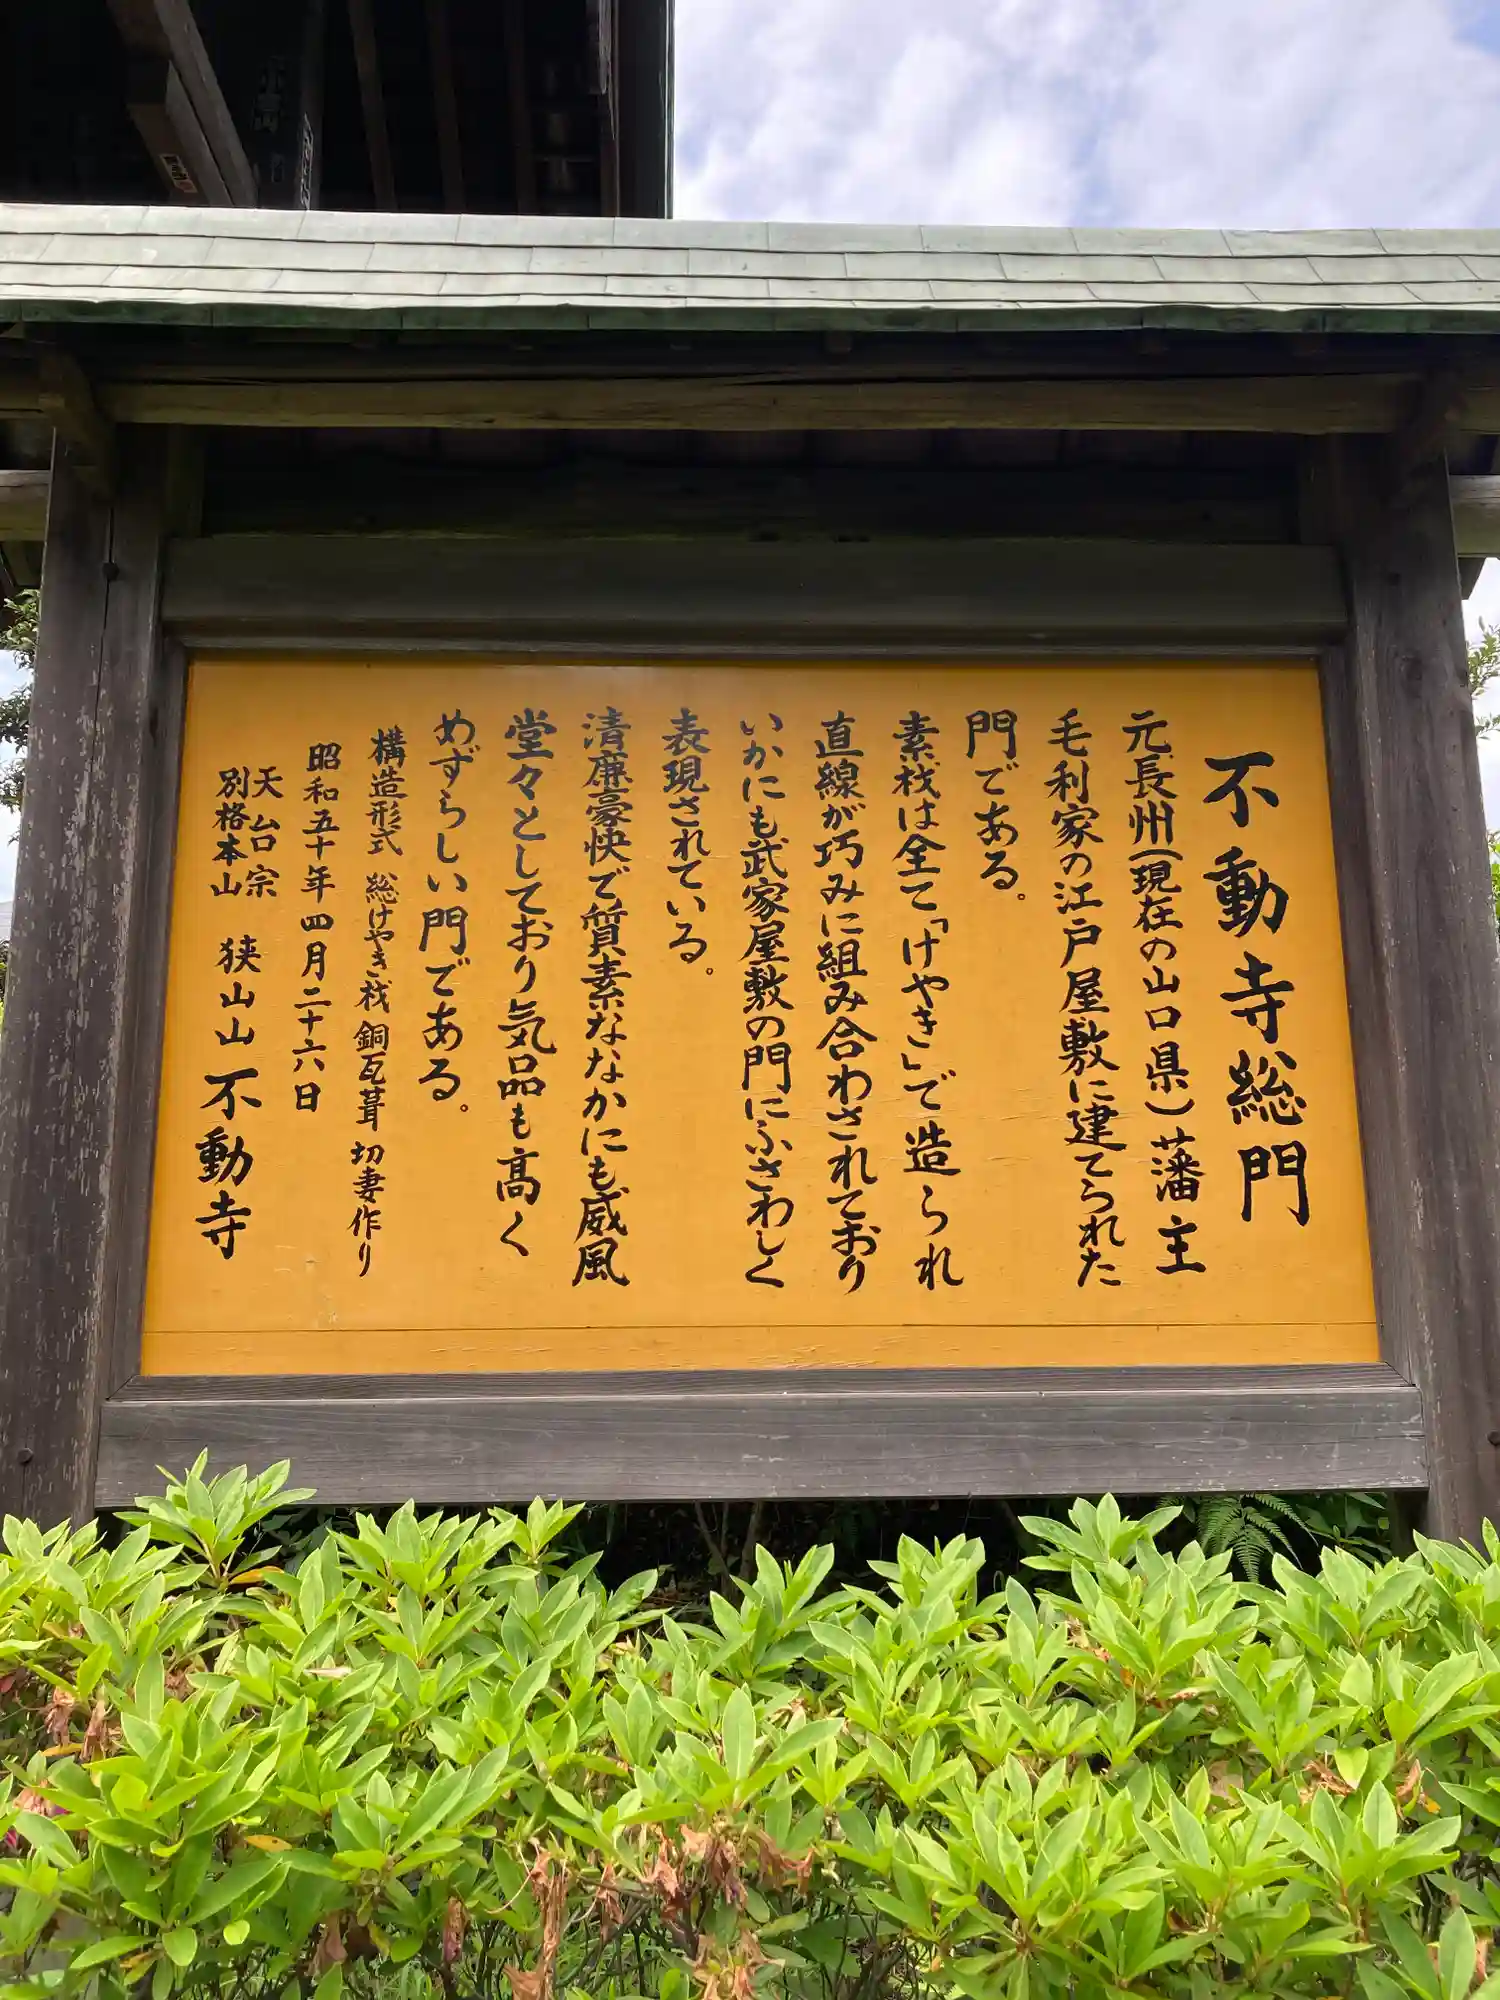 不動寺総門
元長州(現在の山口県)藩主
毛利家の江戸屋敷に建てられた
門である。
素材は全て「けやき」で造られ
直線が巧みに組み合わされており
いかにも武家屋敷の門にふさわしく
表現されている。
清廉豪快で質素ななかにも威風
堂々としており気品も高く
めずらしい門である。
構造形式 総けやき材 銅瓦葺 切妻作り
昭和五十年四月二十六日
天台宗
別格本山 狭山山 不動寺